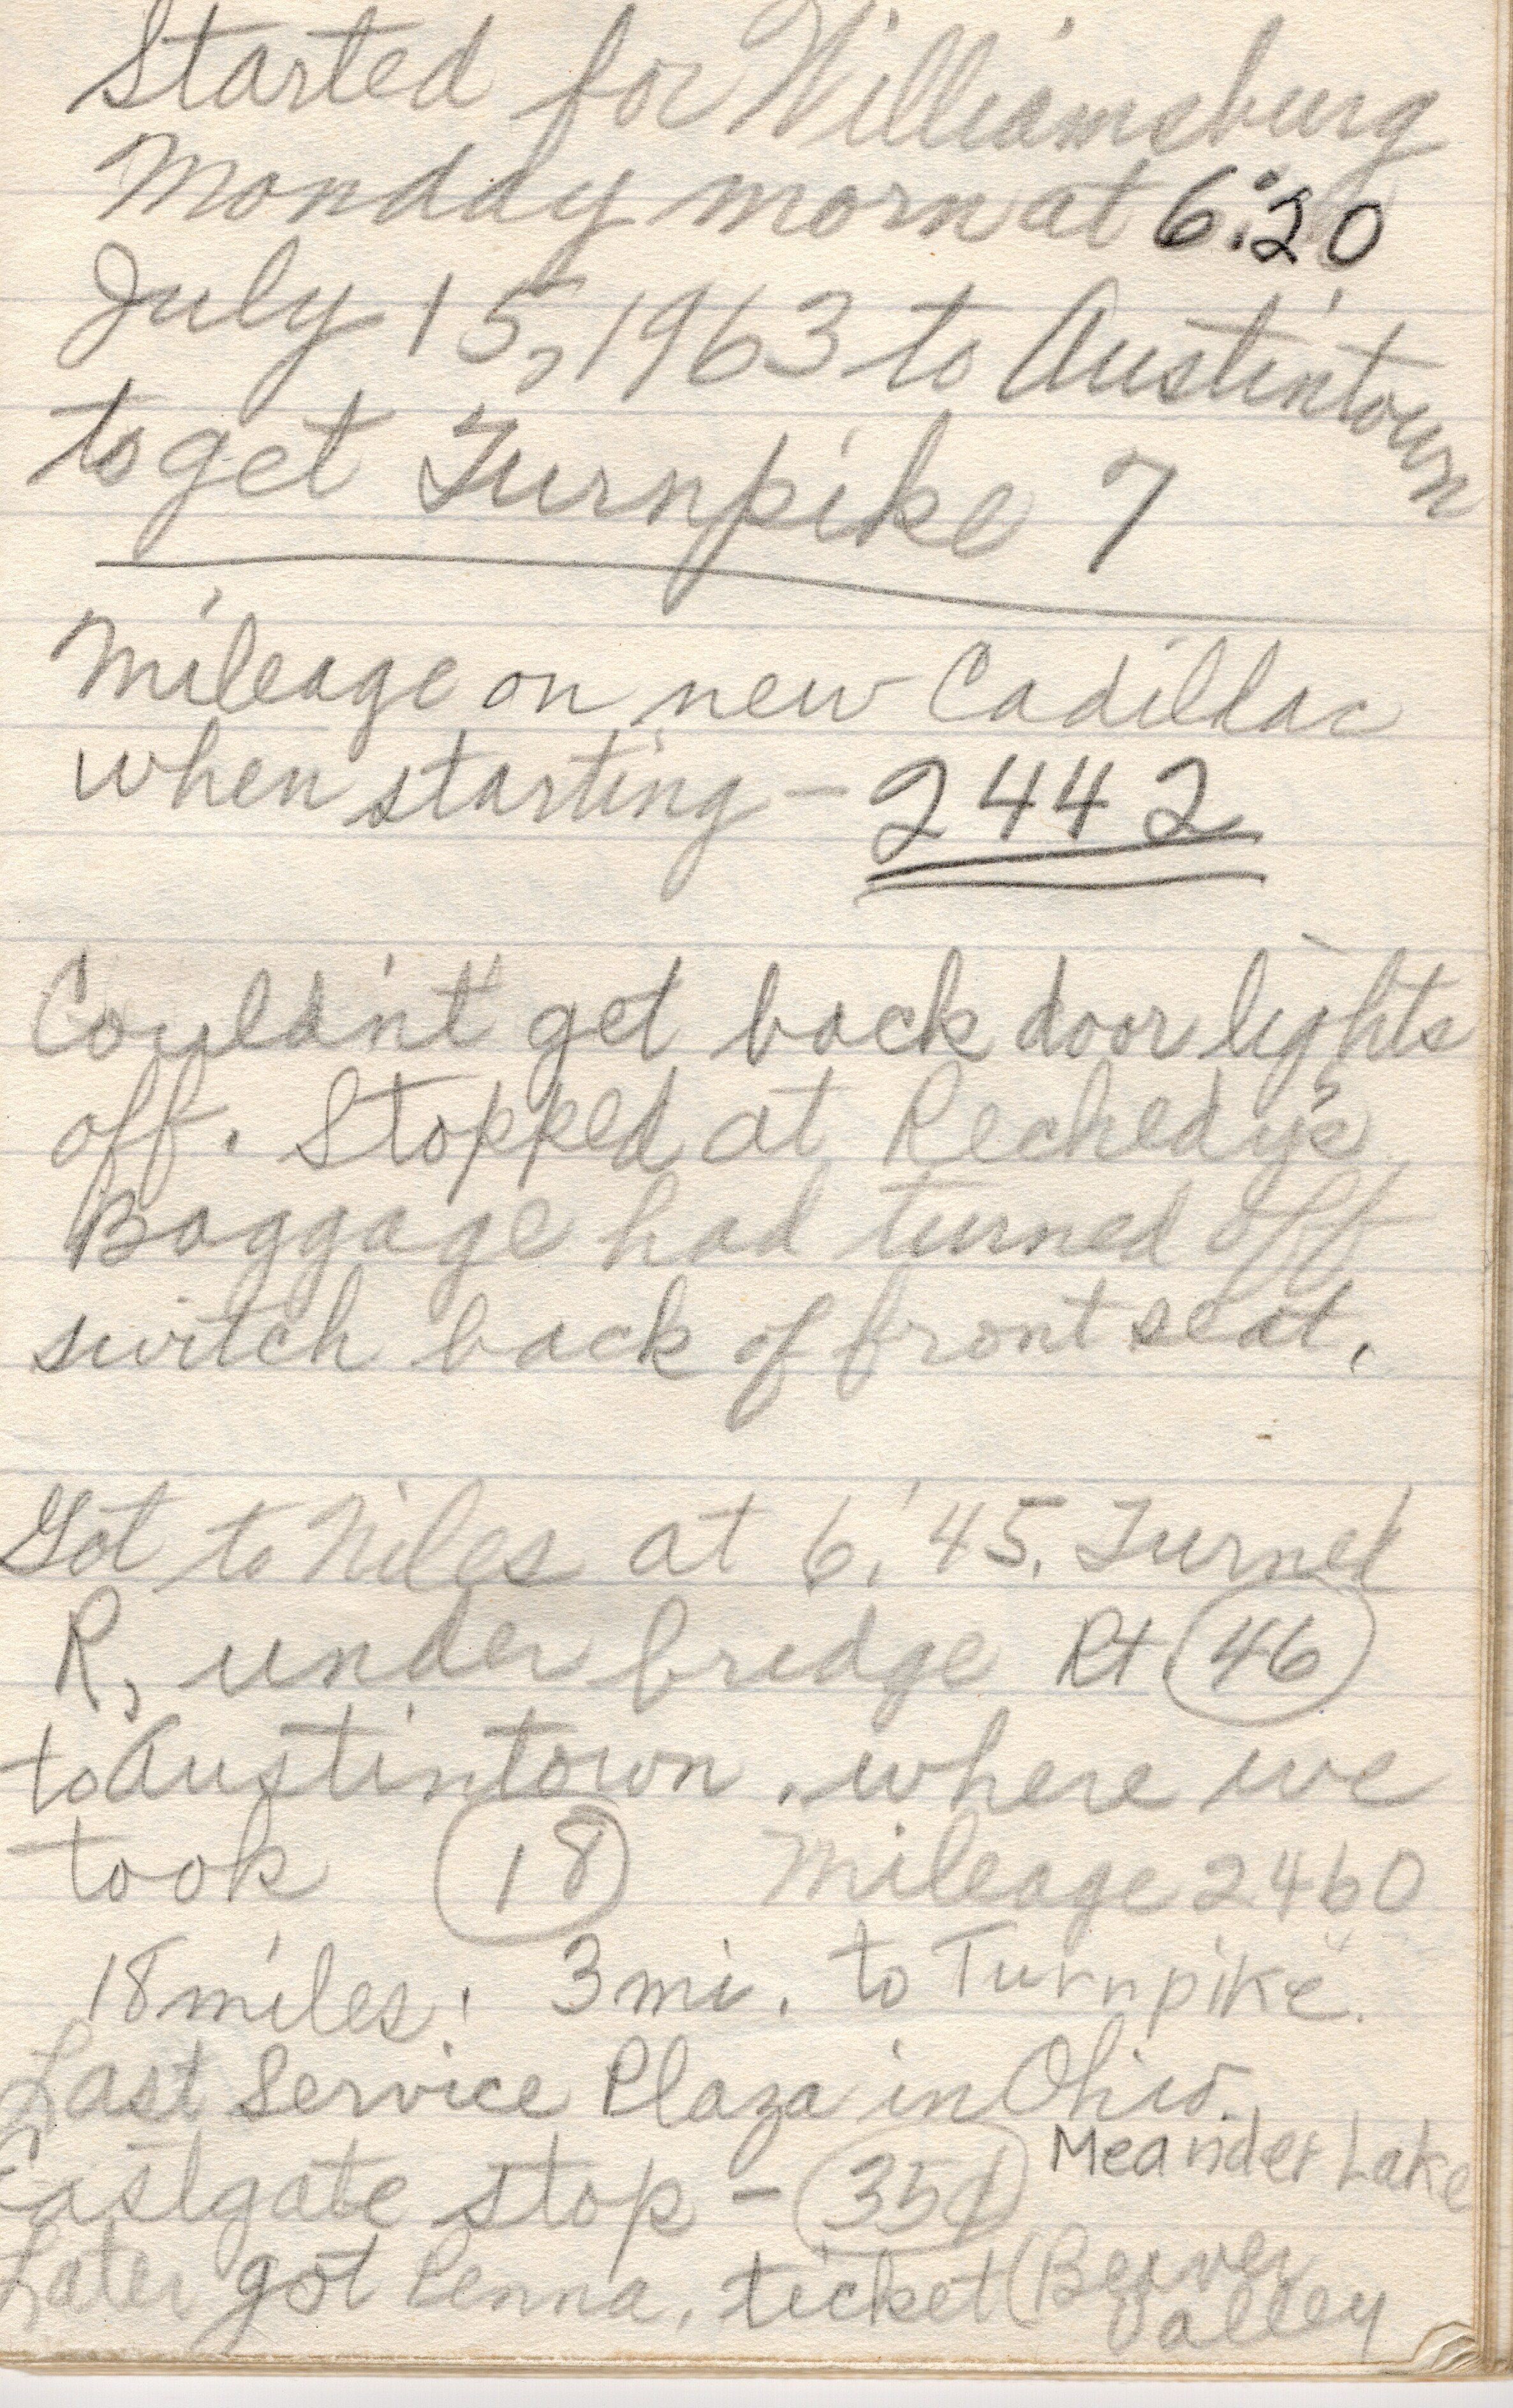 Started for Williamsburg
Monday morn at 6:20
July 15, 1963 to Austintown
to get Turnpike 7
Mileage on new Cadillac
when starting - 2442
Couldn't get back door lights
off. Stopped at
Baggage had turned off
switch back of front seat.
Got to Niles at 6:45. Turned
R, under bridge Rt 46
to Austintown. where we
took 18 Mileage 2460
18 miles! 3 mi. to Turnpike.
Last Service Plaza in Ohio.
Meander Lake
Eastgate stop - 35¢
Later got Penna. ticket (Beaver
Valley